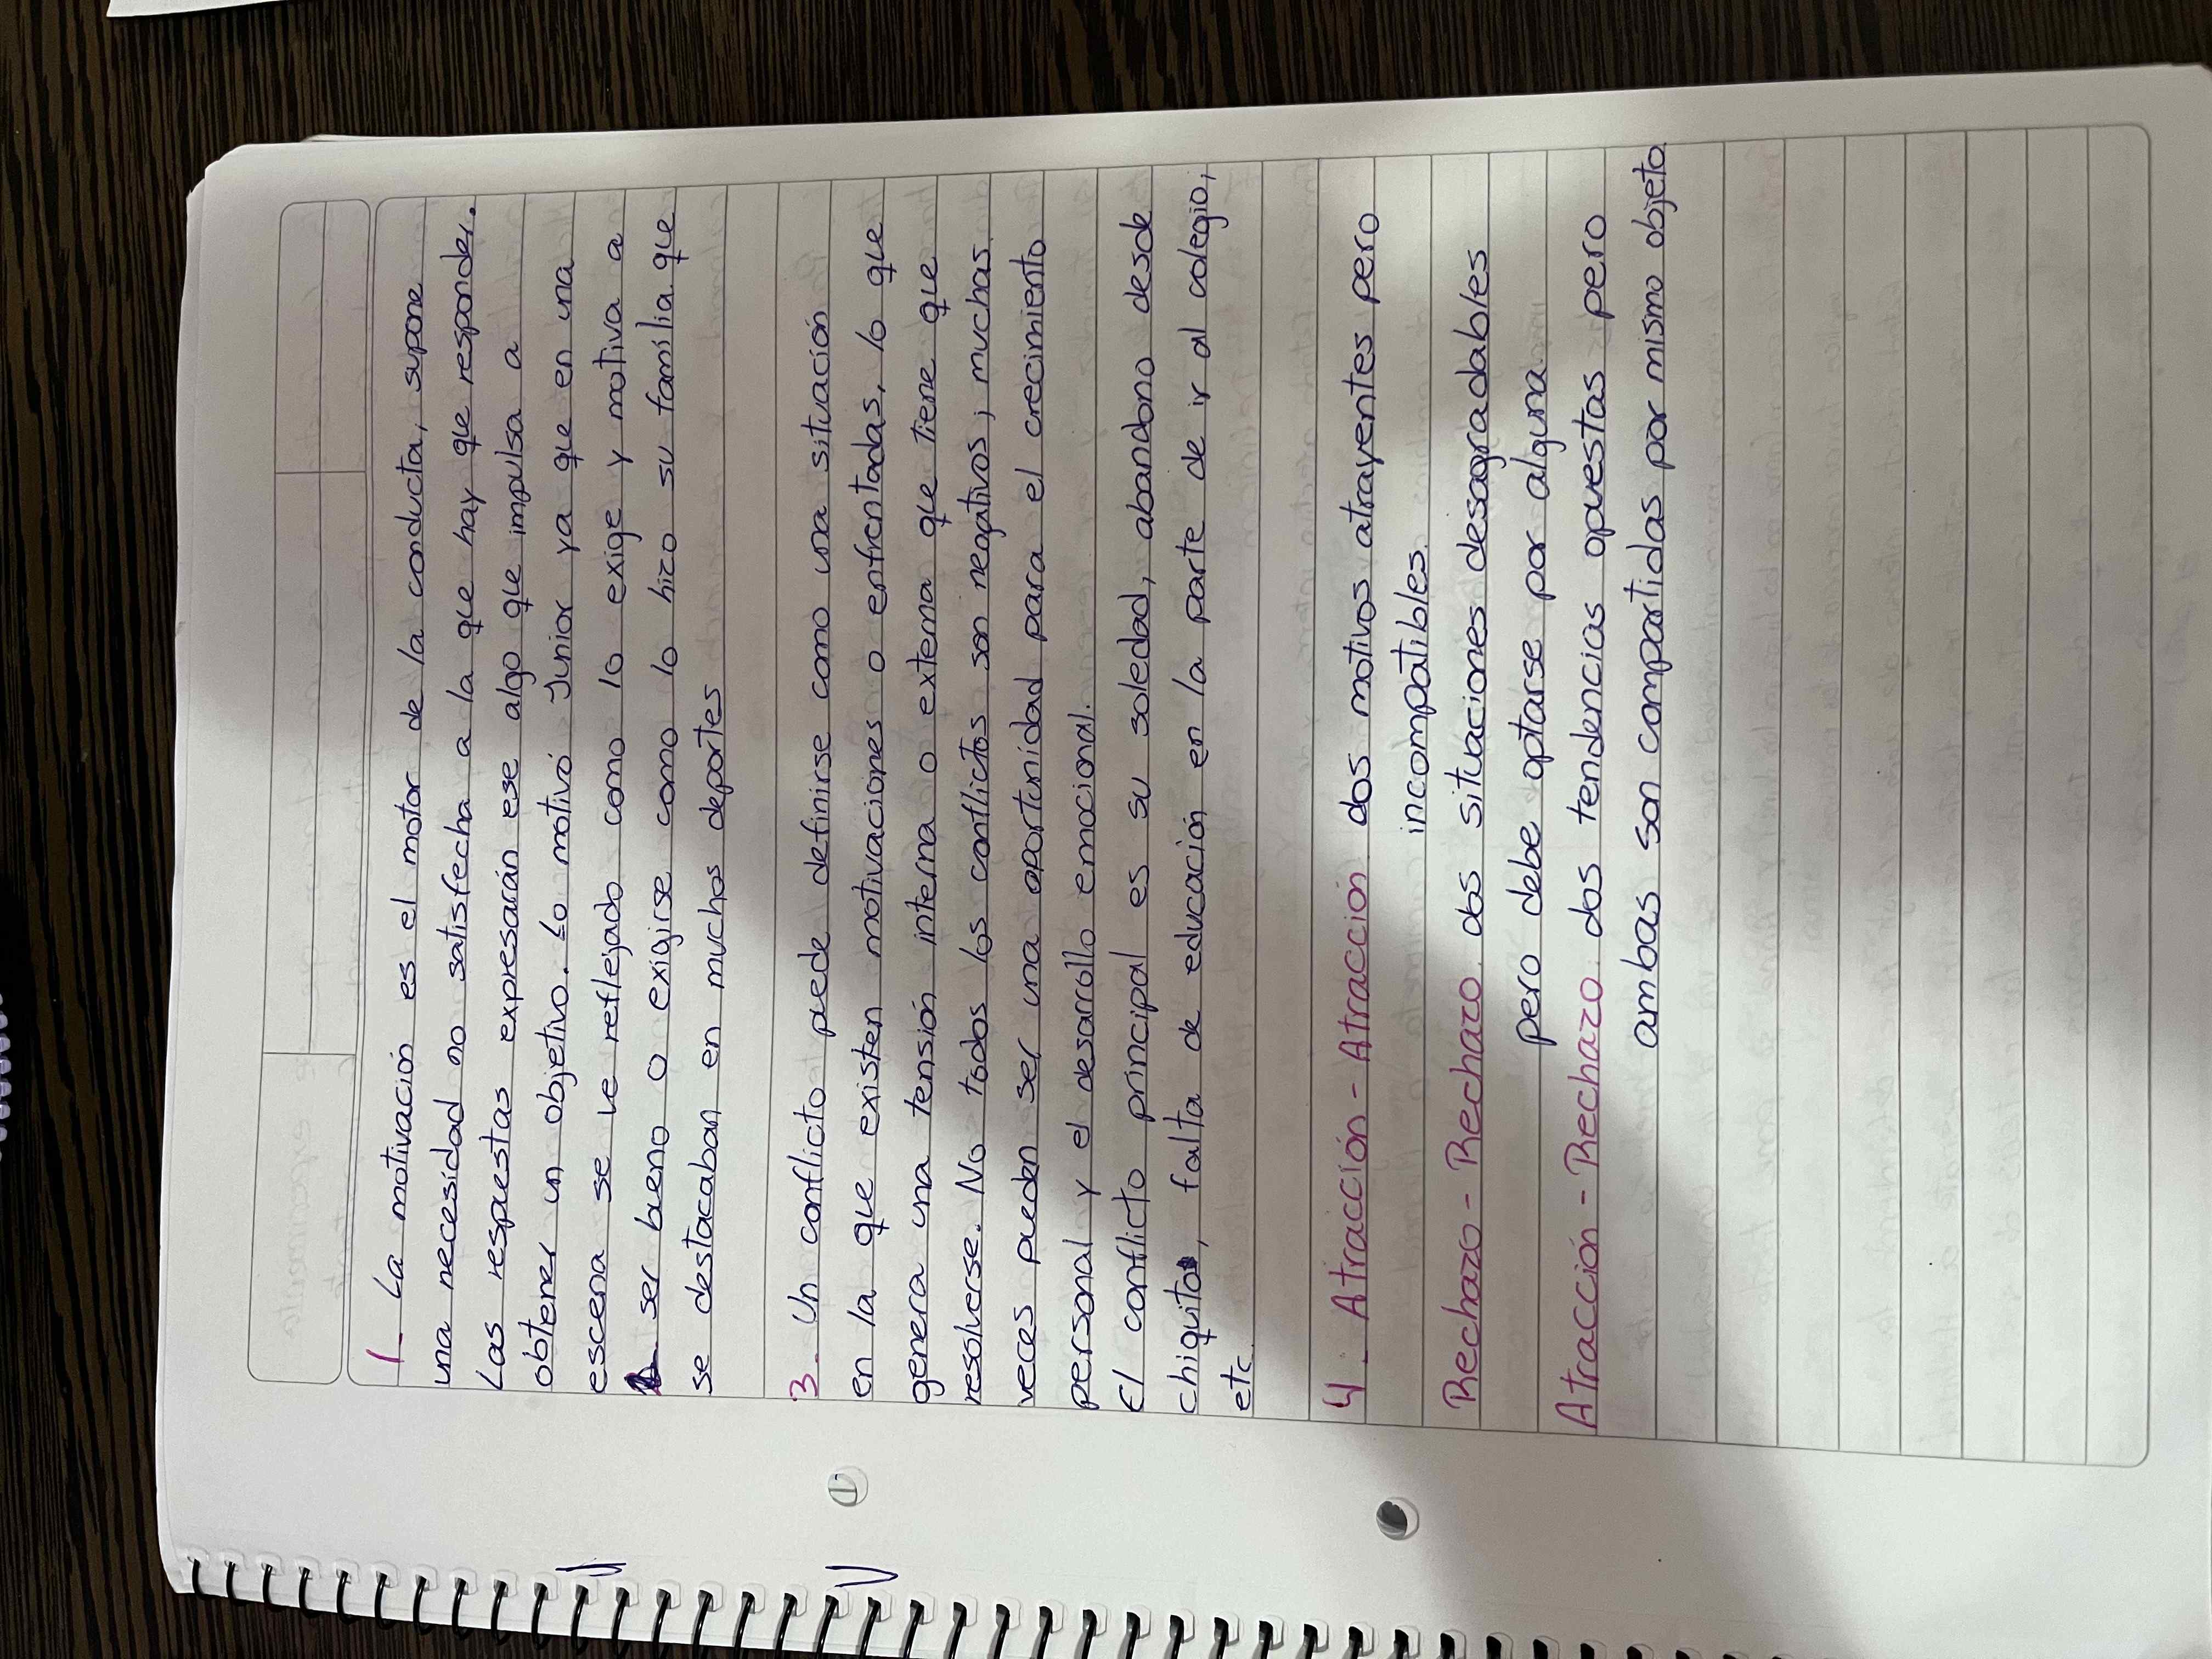 1- La motivación es el motor de la conducta, supone
una necesidad no satisfecha a la que hay que responder.
Las respuestas expresarán ese algo que impulsa a
obtener un objetivo. Lo motivó Junior ya que en una
escena se ve reflejado como lo exige y motiva a
ser bueno o exigirse como lo hizo su familia que
se destacaban en muchos deportes
3- Un conflicto puede definirse como una situación
en la que existen motivaciones o enfrentadas, lo que
genera una tensión interna o externa que tiene que
resolverse. No todos los conflictos son negativos, muchas
veces pueden ser una oportunidad para el crecimiento
personal y el desarrollo emocional.
El conflicto principal es su soledad, abandono desde
chiquito, falta de educación en la parte de ir al colegio,
etc.
4- Atracción - Atracción. dos motivos atrayentes pero
incompatibles.
Rechazo - Rechazo. dos situaciones desagradables
pero debe optarse por alguna.
Atracción - Rechazo. dos tendencias opuestas pero
ambas son compartidas por mismo objeto.